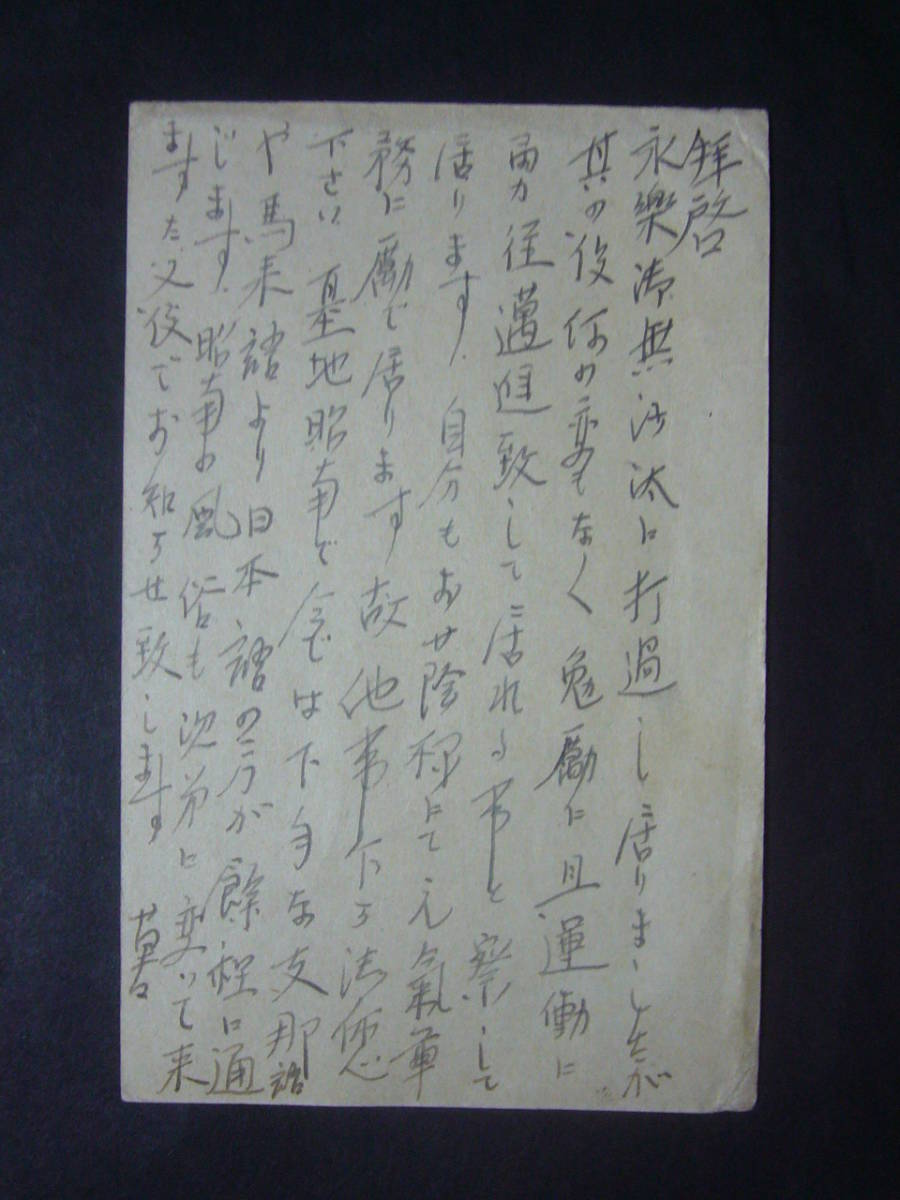 拝啓
永樂御無沙汰に打過し居りましたが
其の後何の変もなく勉励に且運動に
勇往邁進致して居れる事と察して
居ります、自分もおせ陰様にて元氣軍
務に励で居ります故他事下さい
下さい 基地昭南で今では下手な支那語
や馬来語より日本語の方が餘程に通
じます、昭南の風俗も次第に変って来
ますた又後でお知らせ致します 草々